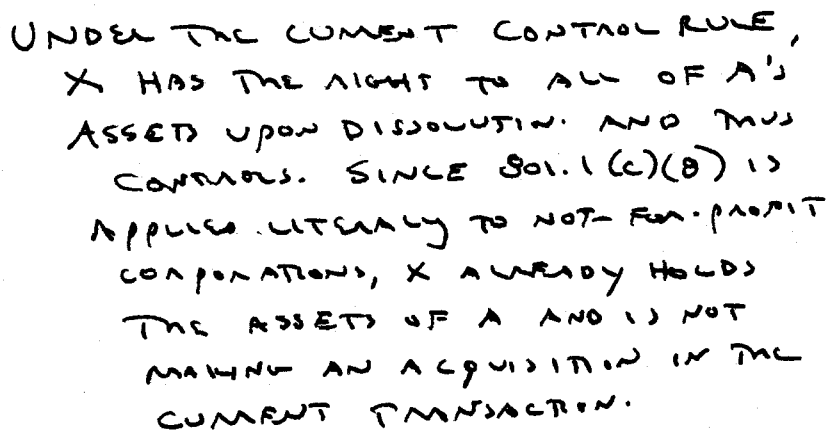 UNDER THE CURRENT CONTROL RULE,
X HAS THE RIGHT TO ALL OF A'S
ASSETS UPON DISSOLUTIN. AND THUS
CONTROLS. SINCE 801.1(c)(8) IS
APPLIED LITERALY TO NOT-FOR-PROFIT
CORPORATIONS, X ALREADY HOLDS
THE ASSETS OF A AND IS NOT
MAKING AN ACQUISITION IN THE
CURRENT TRANSACTION.